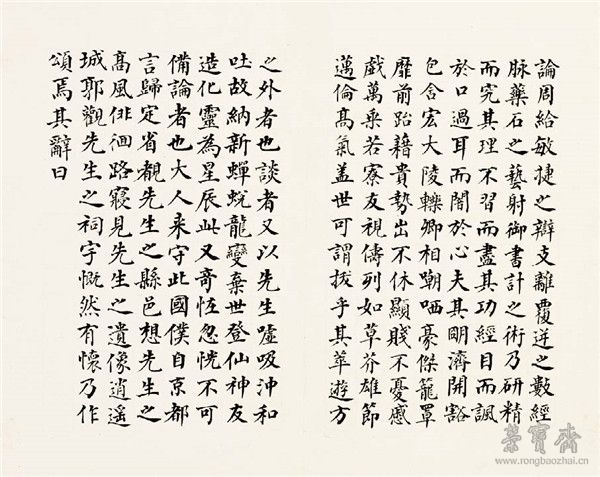 論周給敏捷之辯支離覆逆之數經
脉藥石之藝射御書計之術乃研精
而究其理不習而盡其功經目而諷
於口過耳而闇於心夫其明濟開豁
包含宏大陵轢卿相嘲哂豪傑籠罩
靡前跆藉貴勢出不休顯賤不憂慼
戲萬乘若寮友視儔列如草芥雄節
邁倫高氣盖世可謂拔乎其萃遊方
之外者也談者又以先生噓吸沖和
吐故納新蟬蛻龍變棄世登仙神友
造化靈為星辰此又奇恠忽恍不可
備論者也大人来守此國僕自京都
言歸定省覩先生之縣邑想先生之
高風俳佪路寢見先生之遺像逍遥
城郭觀先生之祠宇慨然有懷乃作
頌焉其辭曰
榮寶齋
www.rongbaozhai.cn